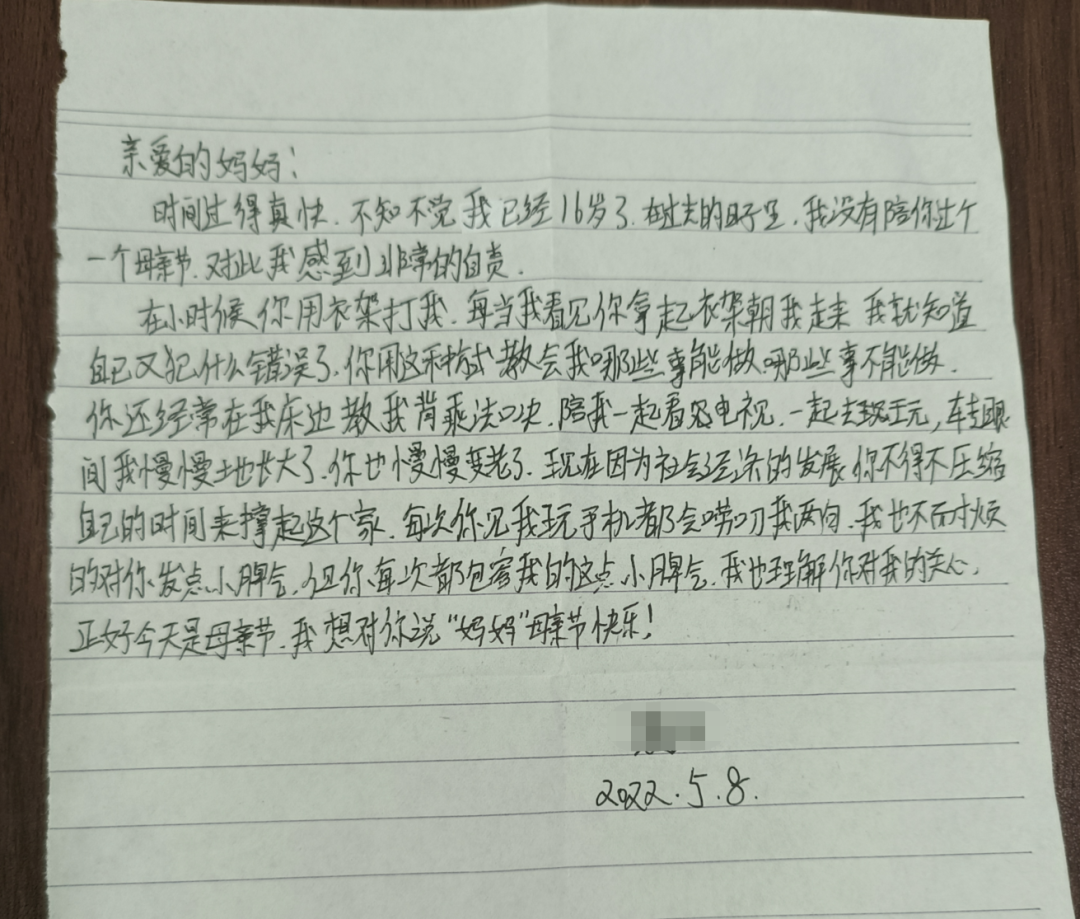 亲爱的妈妈：
时间过得真快．不知不觉我已经16岁了．在过去的日子里．我没有陪你过个
一个母亲节．对此我感到非常的自责．
在小时候你用衣架打我．每当我看见你拿起衣架朝我走来 我就知道
自己又犯什么错误了．你用这种方式教会我哪些事能做．哪些事不能做．
你还经常在我床边教我背乘法口决．陪我一起看电视．一起去玩，转眼
间我慢慢地长大了．你也慢慢变老了．现在因为社会经济的发展 你不得不压缩
自己的时间来撑起这个家．每次你见我玩手机都会唠叨我两句．我也不耐烦
的对你发点小脾气．但你每次都包容我的这点小脾气．我也理解你对我的关心．
正好今天是母亲节．我想对你说“妈妈”母亲节快乐！
2022.5.8.